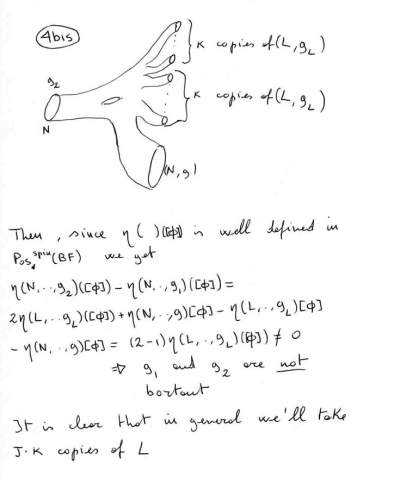 4bis
K copies of (L, g_L)
g_2
K copies of (L, g_L)
N
(N, g)
Then, since η( )([ϕ]) is well defined in
Pos^spin(BF) we get
η(N,.,g_2)([ϕ]) - η(N,.,g_1)([ϕ]) =
2η(L,..g_L)([ϕ]) + η(N,..,g)[ϕ] - η(L,.,g_L)[ϕ]
- η(N,..,g)[ϕ] = (2-1)η(L,.,g_L)([ϕ]) ≠ 0
⇒ g_1 and g_2 are not
bordant
It is clear that in general we'll take
J·K copies of L